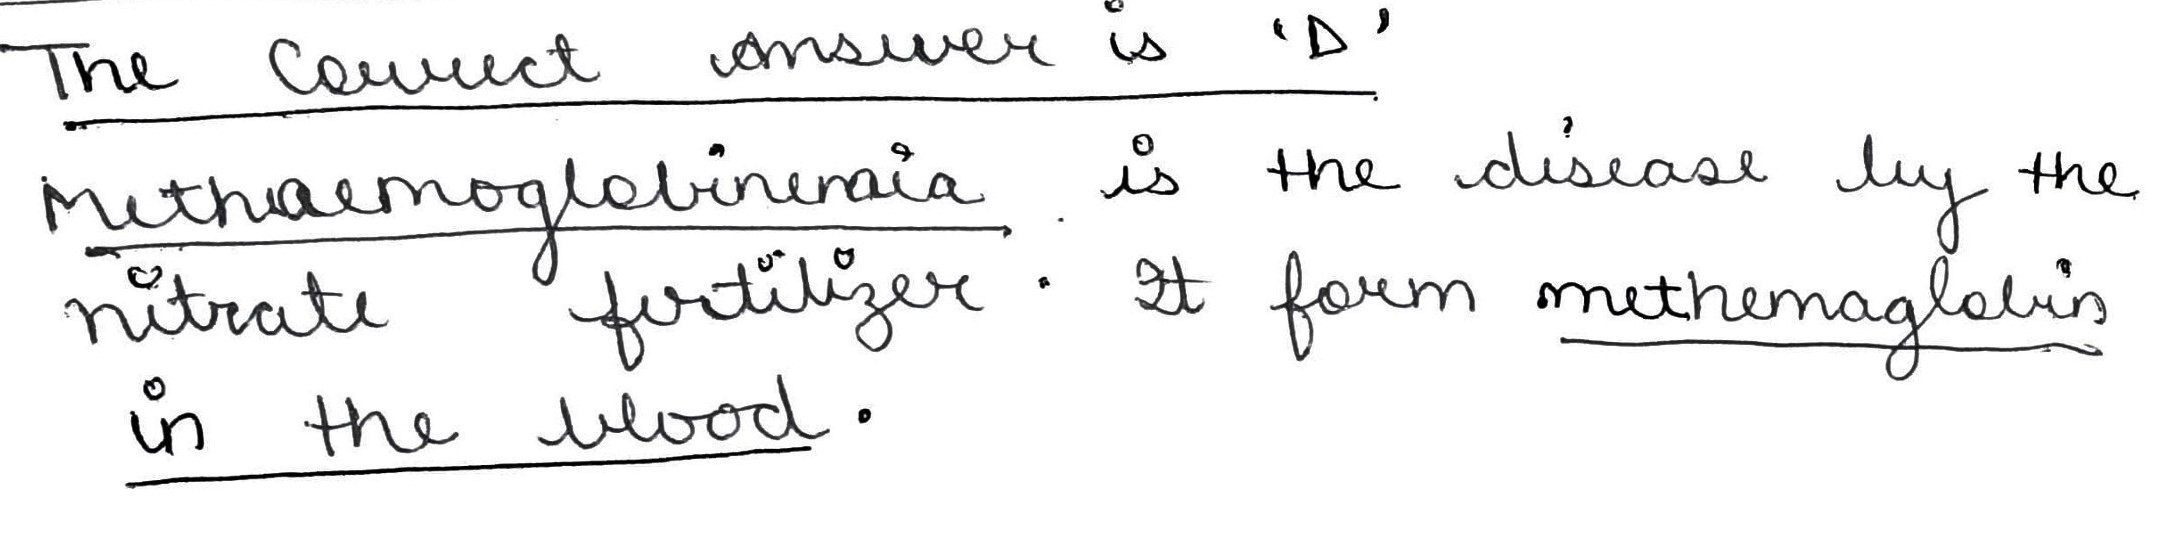 The Correct answer is 'D'
Methaemoglobinemia is the disease by the
nitrate fertilizer. It form methemaglobin
in the blood.